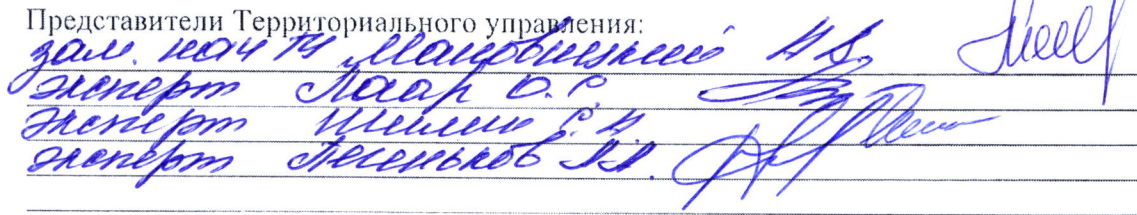 Представители Территориального управления:
зам. нач ТУ
эксперт Лаар О.С
эксперт Шилин С.Н
эксперт Песеньков А.А.